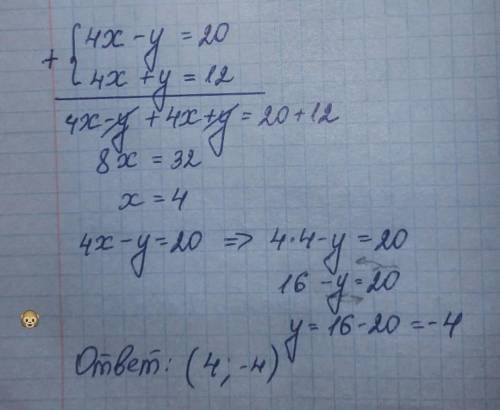 + { 4x - y = 20
4x + y = 12
4x - y + 4x + y = 20 + 12
8x = 32
x = 4
4x - y = 20 => 4·4 - y = 20
16 - y = 20
y = 16 - 20 = -4
Ответ: (4; -4)